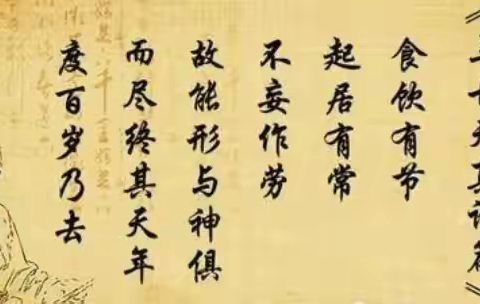 《上古天真论篇》
食饮有节
起居有常
不妄作劳
故能形与神俱
而尽终其天年
度百岁乃去